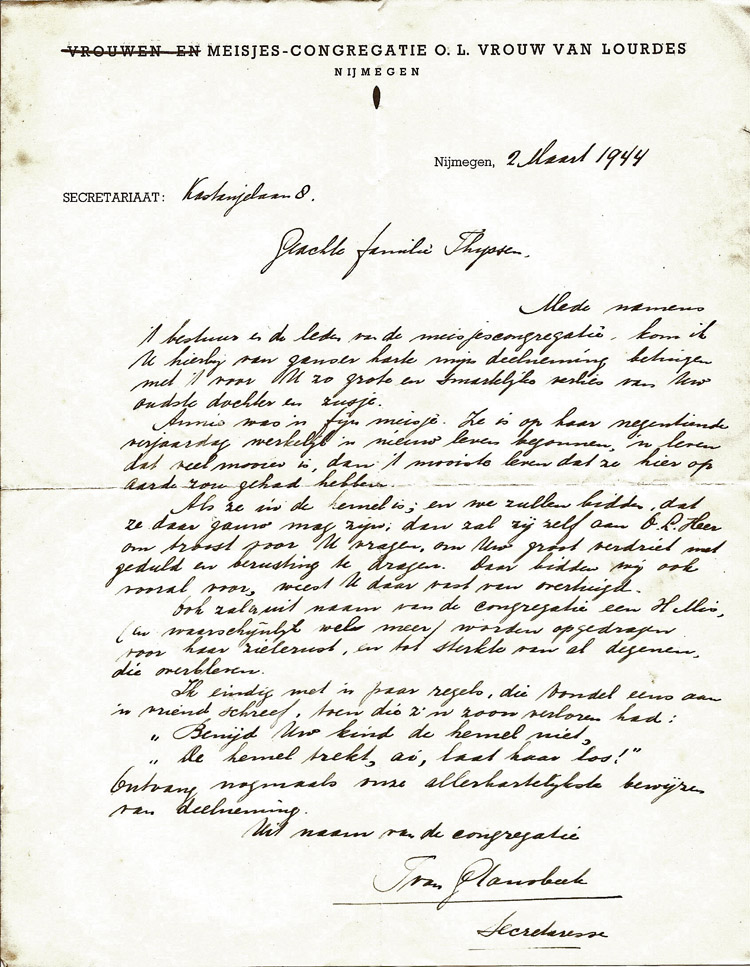 VROUWEN EN MEISJES-CONGREGATIE O. L. VROUW VAN LOURDES
NIJMEGEN
Nijmegen, 2 Maart 1944
SECRETARIAAT: Kastanjelaan 8.
Geachte familie Thijssen,
Mede namens
't bestuur en de leden van de meisjescongregatie, kom ik
U hierbij van ganser harte mijn deelneming betuigen
met 't voor U zo grote en smartelijke verlies van Uw
oudste dochter en zusje.
Annie was 'n fijn meisje. Ze is op haar negentiende
verjaardag werkelijk 'n nieuw leven begonnen, 'n leven
dat veel mooier is, dan 't mooiste leven dat ze hier op
aarde zou gehad hebben.
Als ze in de hemel is; en we zullen bidden, dat
ze daar gauw mag zijn; dan zal zij zelf aan O. L. Heer
om troost voor U vragen, om Uw groot verdriet met
geduld en berusting te dragen. Daar bidden wij ook
vooral voor, weest U daar vast van overtuigd.
Ook zal uit naam van de congregatie een H. Mis,
(en waarschijnlijk wel meer) worden opgedragen
voor haar zielerust, en tot sterkte van al degenen,
die overbleven.
Ik eindig met 'n paar regels, die Vondel eens aan
'n vriend schreef, toen die z'n zoon verloren had:
„ Benijd Uw kind de hemel niet,
„ De hemel trekt, ai, laat haar los!"
Ontvang nogmaals onze allerhartelijkste bewijzen
van deelneming.
Uit naam van de congregatie
van
Secretaresse